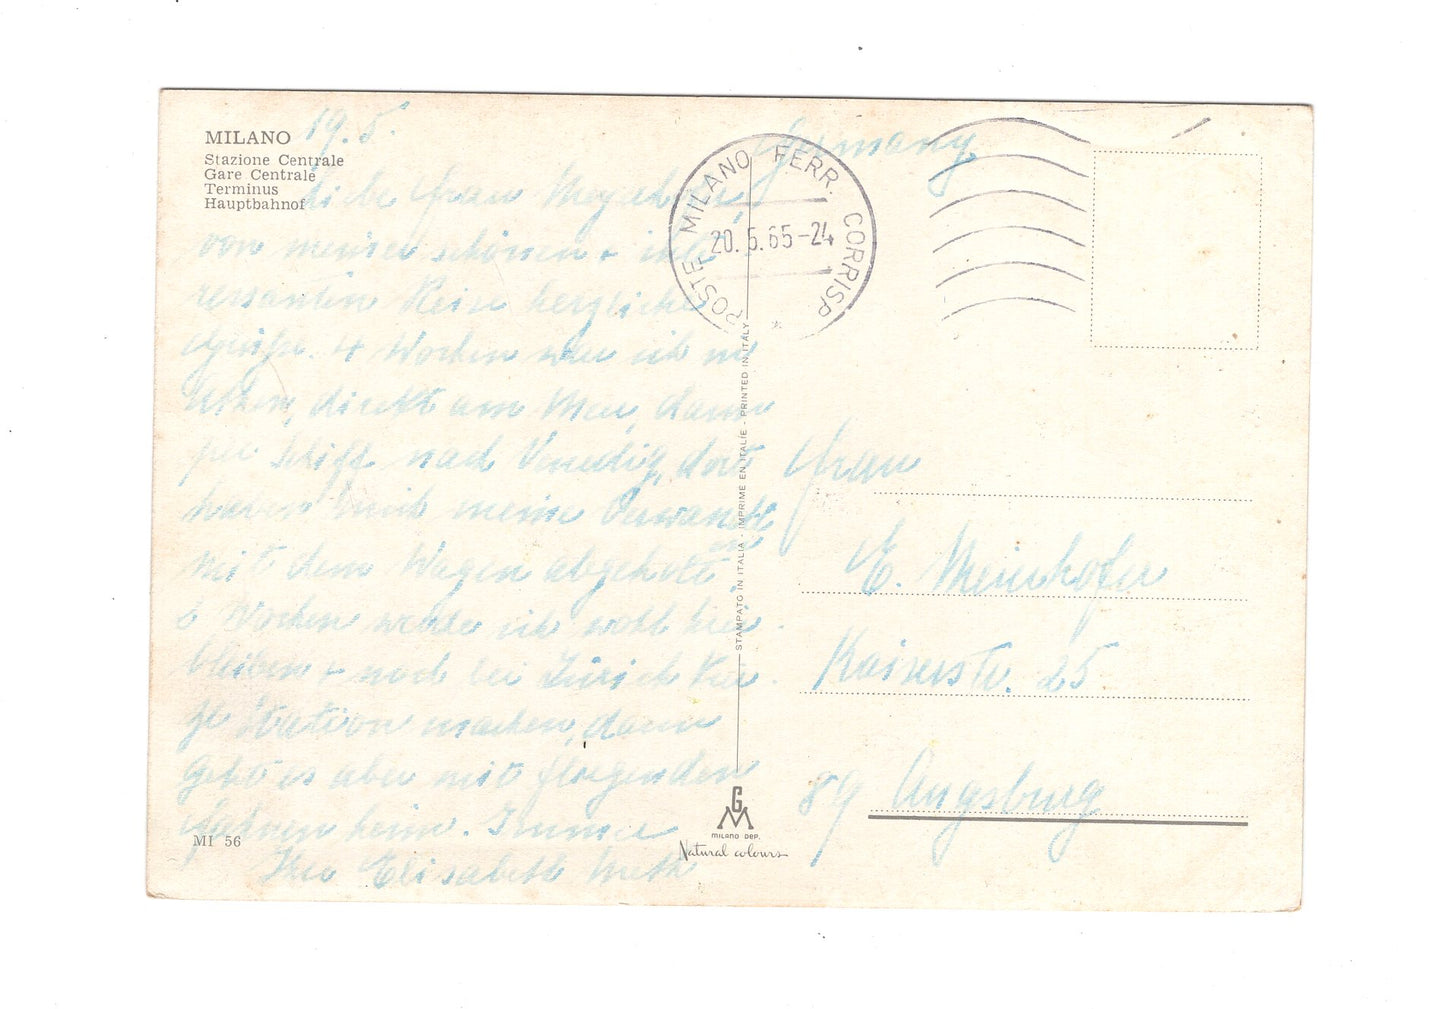 MILANO
Stazione Centrale
Gare Centrale
Terminus
Hauptbahnof
19.5.
Liebe Frau
von meiner schönen + inte
ressanten Reise herzliche
Grüße. 4 Wochen war ich in
direkt am Meer, dann
per Schiff nach Venedig, dort
haben mich meine Verwandt
en
mit dem Wagen abgeholt.
2 Wochen werde ich wohl hier
bleiben + noch bei Zürich kur
ze Station machen, dann
geht es aber mit fliegenden
Fahnen heim. Immer
Ihre Elisabeth
MI 56
POSTE MILANO FERR. CORRISP.
20.5.65-24
Germany
STAMPATO IN ITALIA - IMPRIME EN ITALIE - PRINTED IN ITALY
Frau
E. Meierhofer
Kaiserstr. 25
89 Augsburg
GM
MILANO DEP.
Natural colours